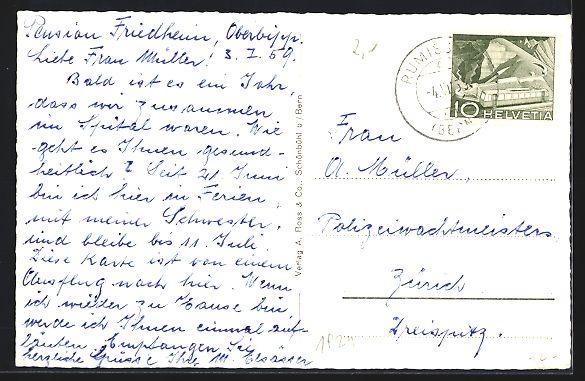 Pension Friedheim, Oberbipp.
Liebe Frau Müller! 3. 7. 59.
Bald ist es ein Jahr,
dass wir zusammen
im Spital waren. Wie
geht es Ihnen gesund-
heitlich? Seit 21. Juni
bin ich hier in Ferien,
mit meiner Schwester,
und bleibe bis 11. Juli.
Diese Karte ist von einem
Ausflug nach hier. Wenn
ich wieder zu Hause bin,
werde ich Ihnen einmal auf-
läuten. Empfangen Sie
herzliche Grüsse Ihre M. Elsässer
Verlag A. Ross & Co., Schönbühl b/Bern
2,-
RUMIS
(BERN)
10 HELVETIA
Frau
A. Müller,
Polizeiwachtmeisters
Zürich
Dreispitz.